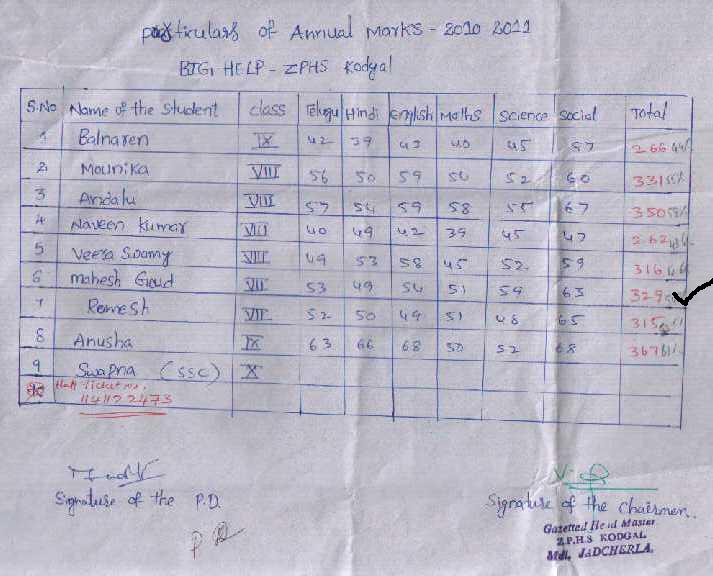 particulars of Annual Marks - 2010 2011
BIG HELP - ZPHS Kodgal
S.No Name of the Student class Telugu Hindi English Maths Science Social Total
1 Balnaren IX 42 39 43 40 45 57 266
2 Mounika VIII 56 50 59 54 52 60 331
3 Andalu VIII 57 54 59 58 55 67 350
4 Naveen Kumar VIII 40 49 42 39 45 47 262
5 Veera Swamy VIII 49 53 58 45 52 59 316
6 mahesh Goud VII 53 49 54 51 59 63 329
7 Remesh VII 52 50 49 51 48 65 315
8 Anusha IX 63 66 68 50 52 68 367 61%
9 Swapna (SSC) X
Hall Ticket no.
114122473
Signature of the P.D.
P D
Signature of the Chairmen.
Gazetted Head Master
Z.P.H.S KODGAL
Mdl, JADCHERLA.